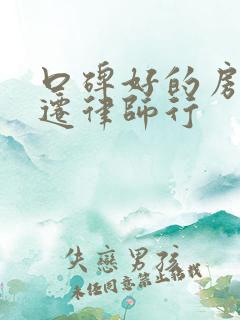 口碑好的房
迁律师行
失恋男孩
未经同意禁止转载